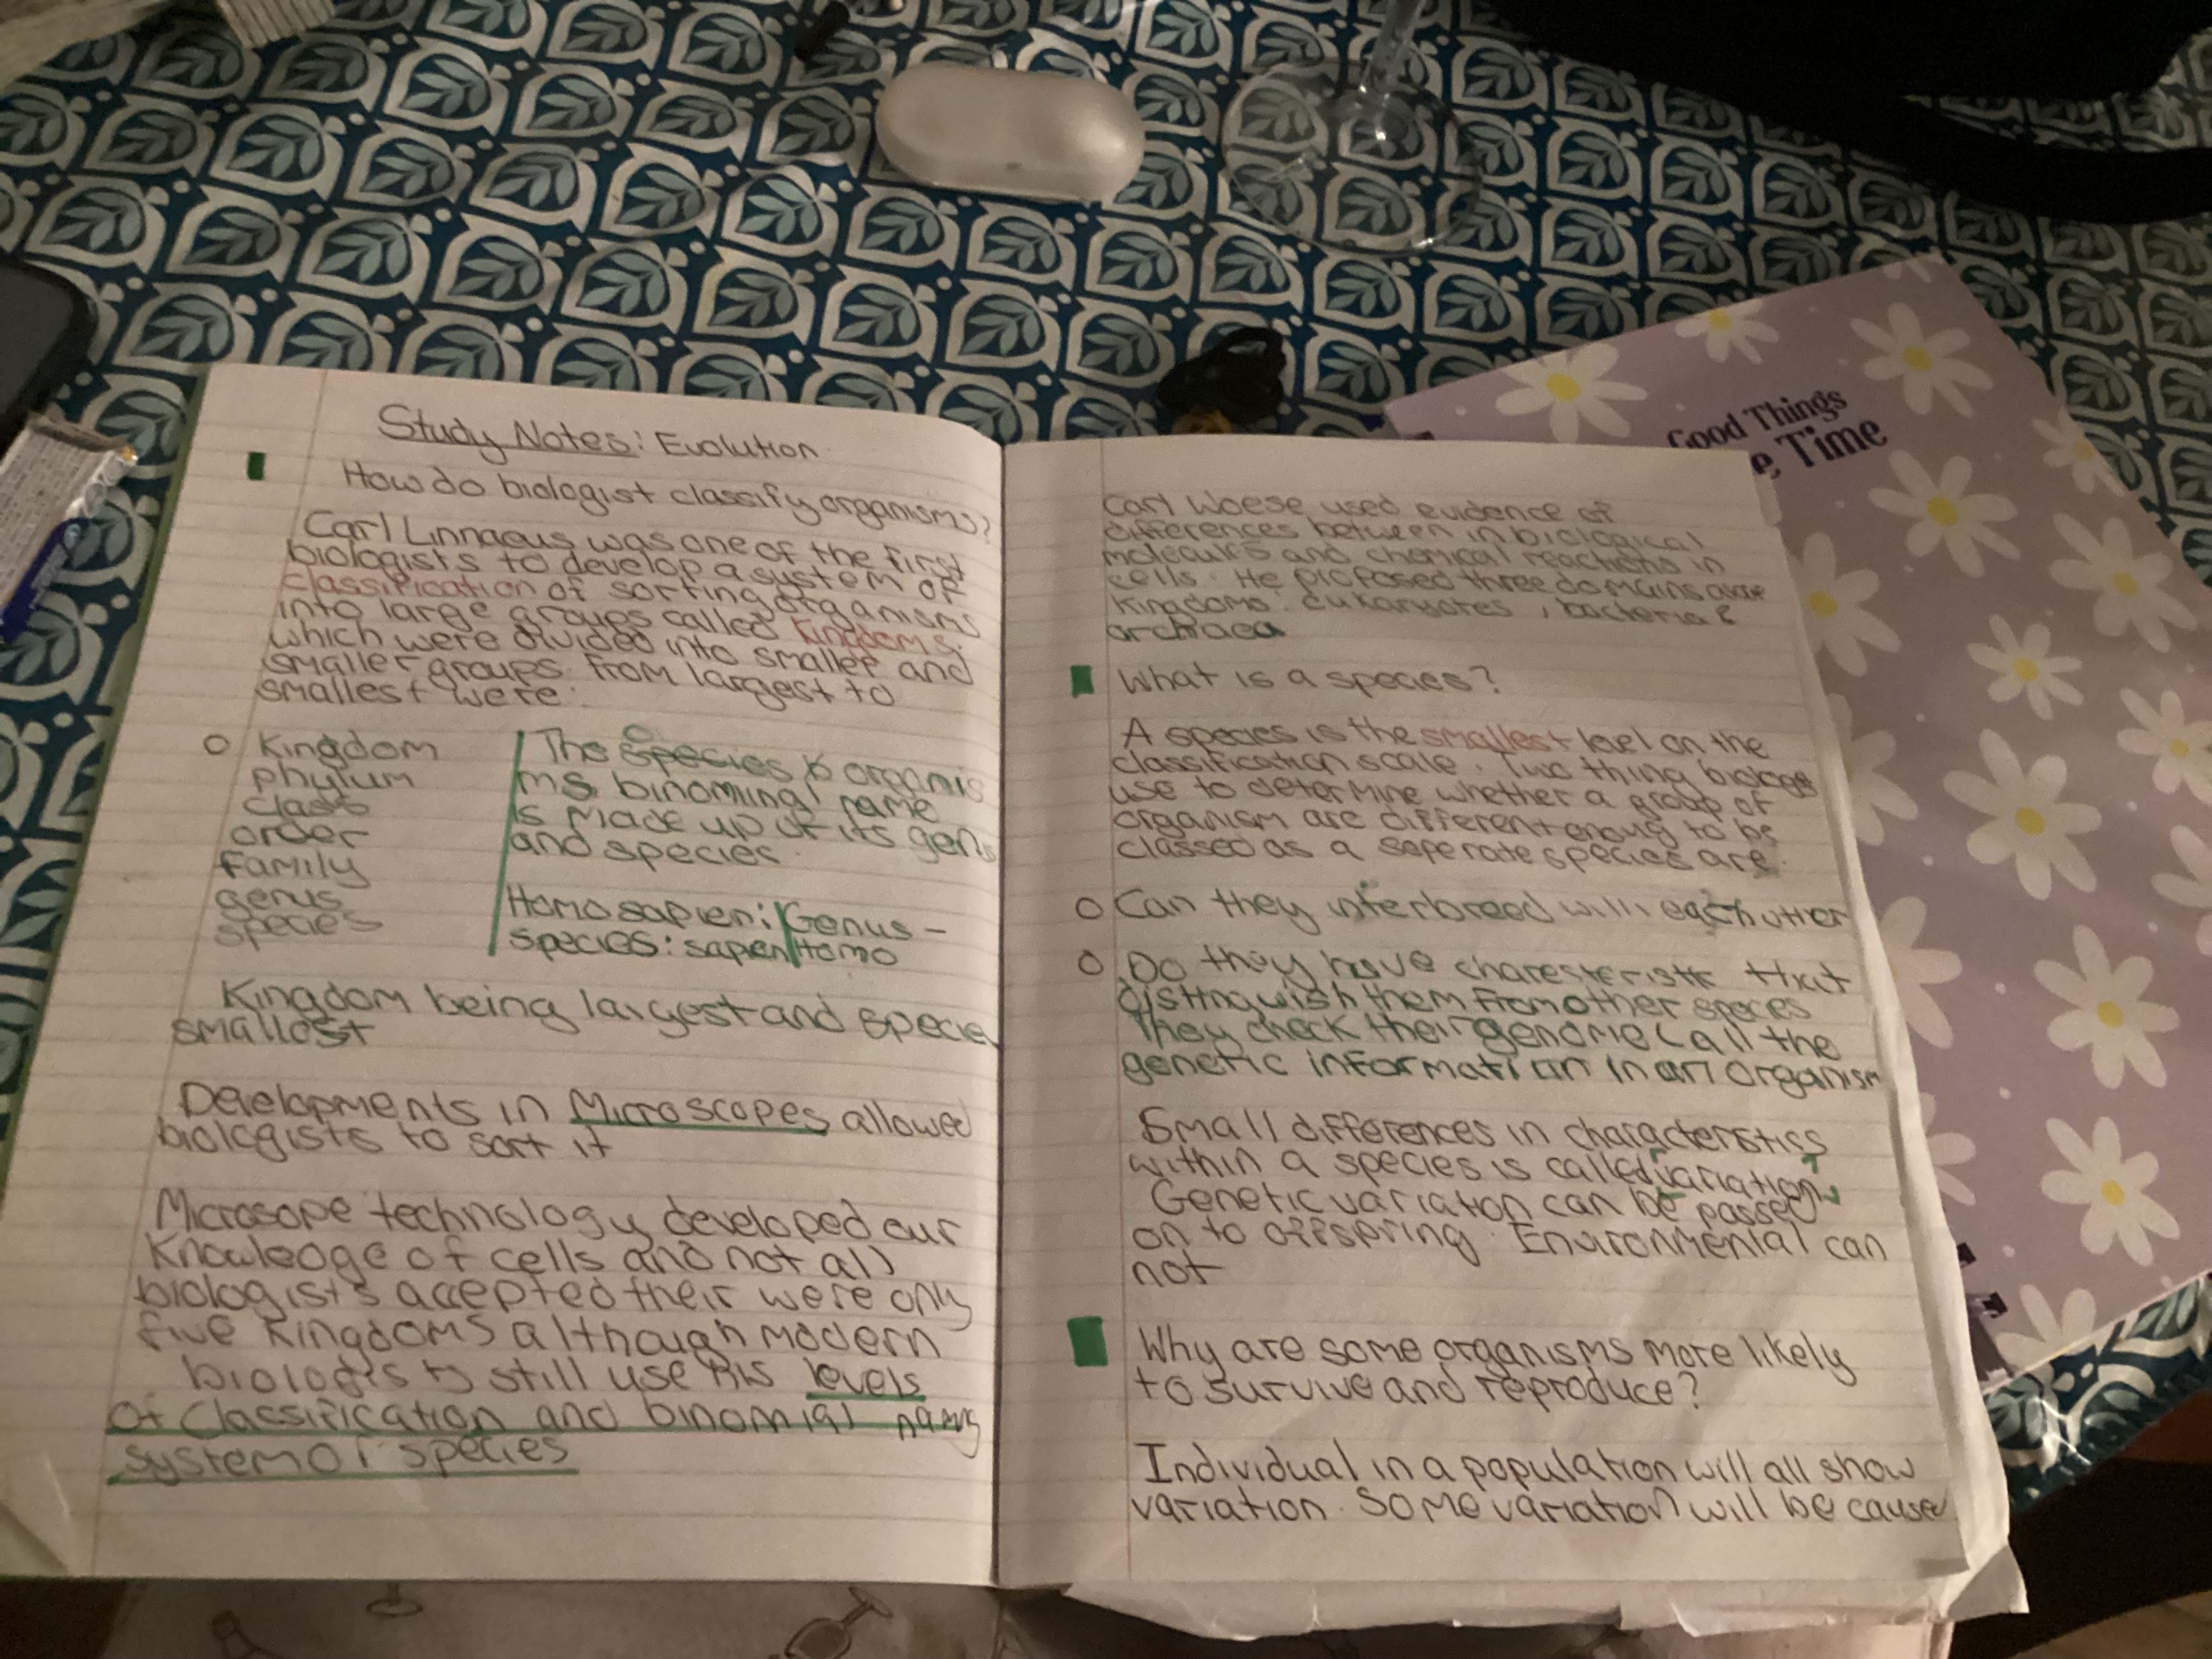 Study Notes: Evolution
How do biologist classify organisms?
Carl Linnaeus was one of the first
biologists to develop a system of
classification of sorting organisms
into large groups called kingdoms.
which were divided into smaller and
smaller groups. From largest to
smallest were:
Kingdom
phylum
class
order
family
genus
species
The species organis
ms binomial name
is made up of its gens
and species.
Homo sapien: Genus -
species: sapien Homo
Kingdom being largest and specie
smallest
Developments in Microscopes allowed
biologists to sort it
Microsope technology developed our
knowledge of cells and not all
biologists accepted their were only
five kingdoms although modern
biologists still use his levels
of classification and binomial
system of species
Carl Woese used evidence of
differences between in biological
molecules and chemical reactions in
cells. He proposed three domains above
kingdoms. eukaryotes, bacteria &
archaea
What is a species?
A species is the smallest level on the
classification scale. Two thing
use to determine whether a group of
organism are different enoug to be
classed as a seperate species are.
Can they interbreed with each other
Do they have that
distinguish them from other speces
They check their genome (all the
genetic information in an organism
Small differences in characteristics
within a species is called variation
Genetic variaton can be passed
on to offspring. Environmental can
not
Why are some organisms more likely
to survive and reproduce?
Individual in a population will all show
variation. Some variation will be cause
Good Things
e Time